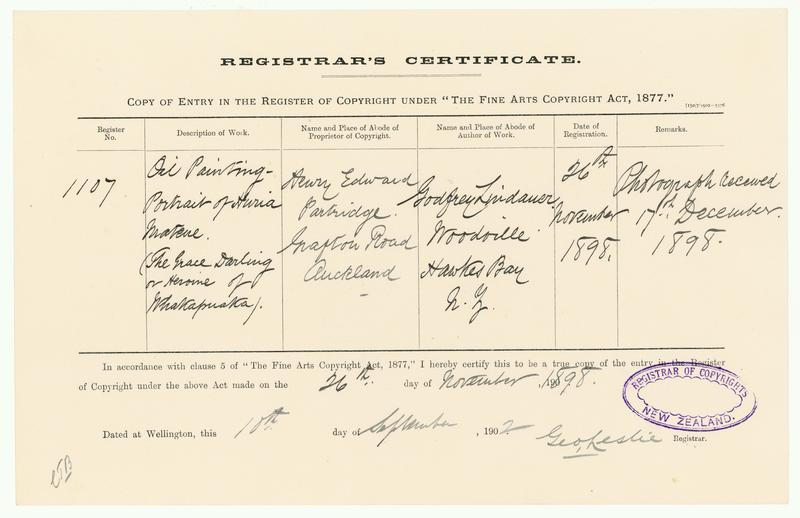 REGISTRAR'S CERTIFICATE.
COPY OF ENTRY IN THE REGISTER OF COPYRIGHT UNDER "THE FINE ARTS COPYRIGHT ACT, 1877."
Register No.
Description of Work.
Name and Place of Abode of Proprietor of Copyright.
Name and Place of Abode of Author of Work.
Date of Registration.
Remarks.
1107
Oil Painting-
Portrait of Huria
Matene.
(The Grace Darling
or Heroine of
Whakapuaka).
Henry Edward
Partridge.
Grafton Road
Auckland
Godfrey Lindauer.
Woodville
Hawkes Bay
N.Z.
26th
November
1898.
Photograph received
17th December.
1898.
In accordance with clause 5 of "The Fine Arts Copyright Act, 1877," I hereby certify this to be a true copy of the entry in the Register
of Copyright under the above Act made on the 26th. day of November , 1898.
REGISTRAR OF COPYRIGHTS
NEW ZEALAND.
Dated at Wellington, this 10th day of September , 1902. Geo, Leslie Registrar.